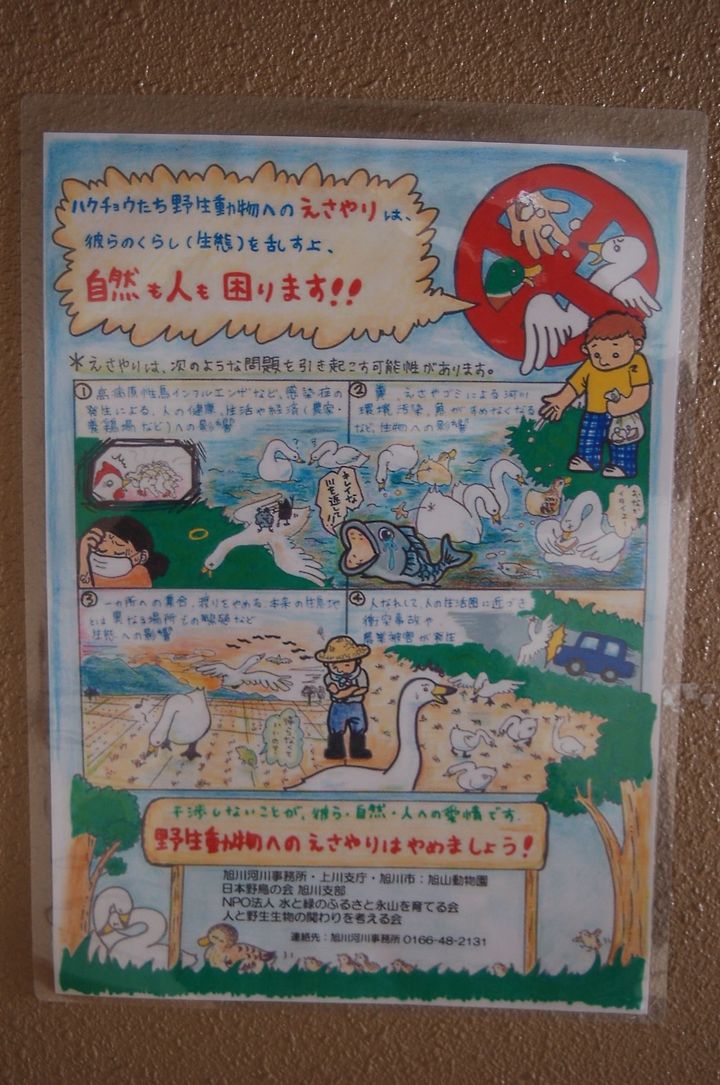 ハクチョウたち野生動物へのえさやりは、
彼らのくらし(生態)を乱す上、
自然も人も困ります!!
*えさやりは、次のような問題を引き起こす可能性があります。
① 高病原性鳥インフルエンザなど、感染症の
発生による、人の健康、生活や経済(農家・
養鶏場など)への影響
② 糞、えさやゴミによる河川
環境汚染、魚がすめなくなる
など、生物への影響
キレイな
川を返して!!
③ 一ヵ所への集合、渡りをやめる、本来の生息地
とは異なる場所での
生態への影響
④ 人なれして、人の生活圏に近づき
衝突事故や
農業被害が発生
帰らなくて
いいの?
干渉しないことが、彼ら・自然・人への愛情です。
野生動物へのえさやりはやめましょう!
旭川河川事務所・上川支庁・旭川市:旭山動物園
日本野鳥の会 旭川支部
NPO法人 水と緑のふるさと永山を育てる会
人と野生生物の関わりを考える会
連絡先:旭川河川事務所 0166-48-2131